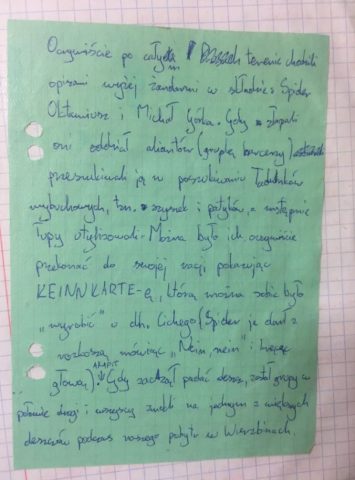 Oczywiście po całym terenie chodzili
opisani wyżej żandarmi w składzie: Spider
Oktawiusz i Michał Górka. Gdy złapali
oni oddział aliantów (grupkę harcerzy)
przeszukiwali ją w poszukiwaniu ładunków
wybuchowych, tzn. szyszek i patyków, a następnie
łupy utylizowali. Można było ich oczywiście
przekonać do swojej racji pokazując
KEINNKARTE-ę, którą można sobie było
„wyrobić” u dh. Cichego (Spider je darł z
rozkoszą mówiąc „Nein, nein” i kręcąc
AKAPIT
głową). Gdy zaczął padać deszcz, został grupy w
połowie drogi i wszyscy zmokli na jednym z większych
deszczów podczas naszego pobytu w Wierzbinach.